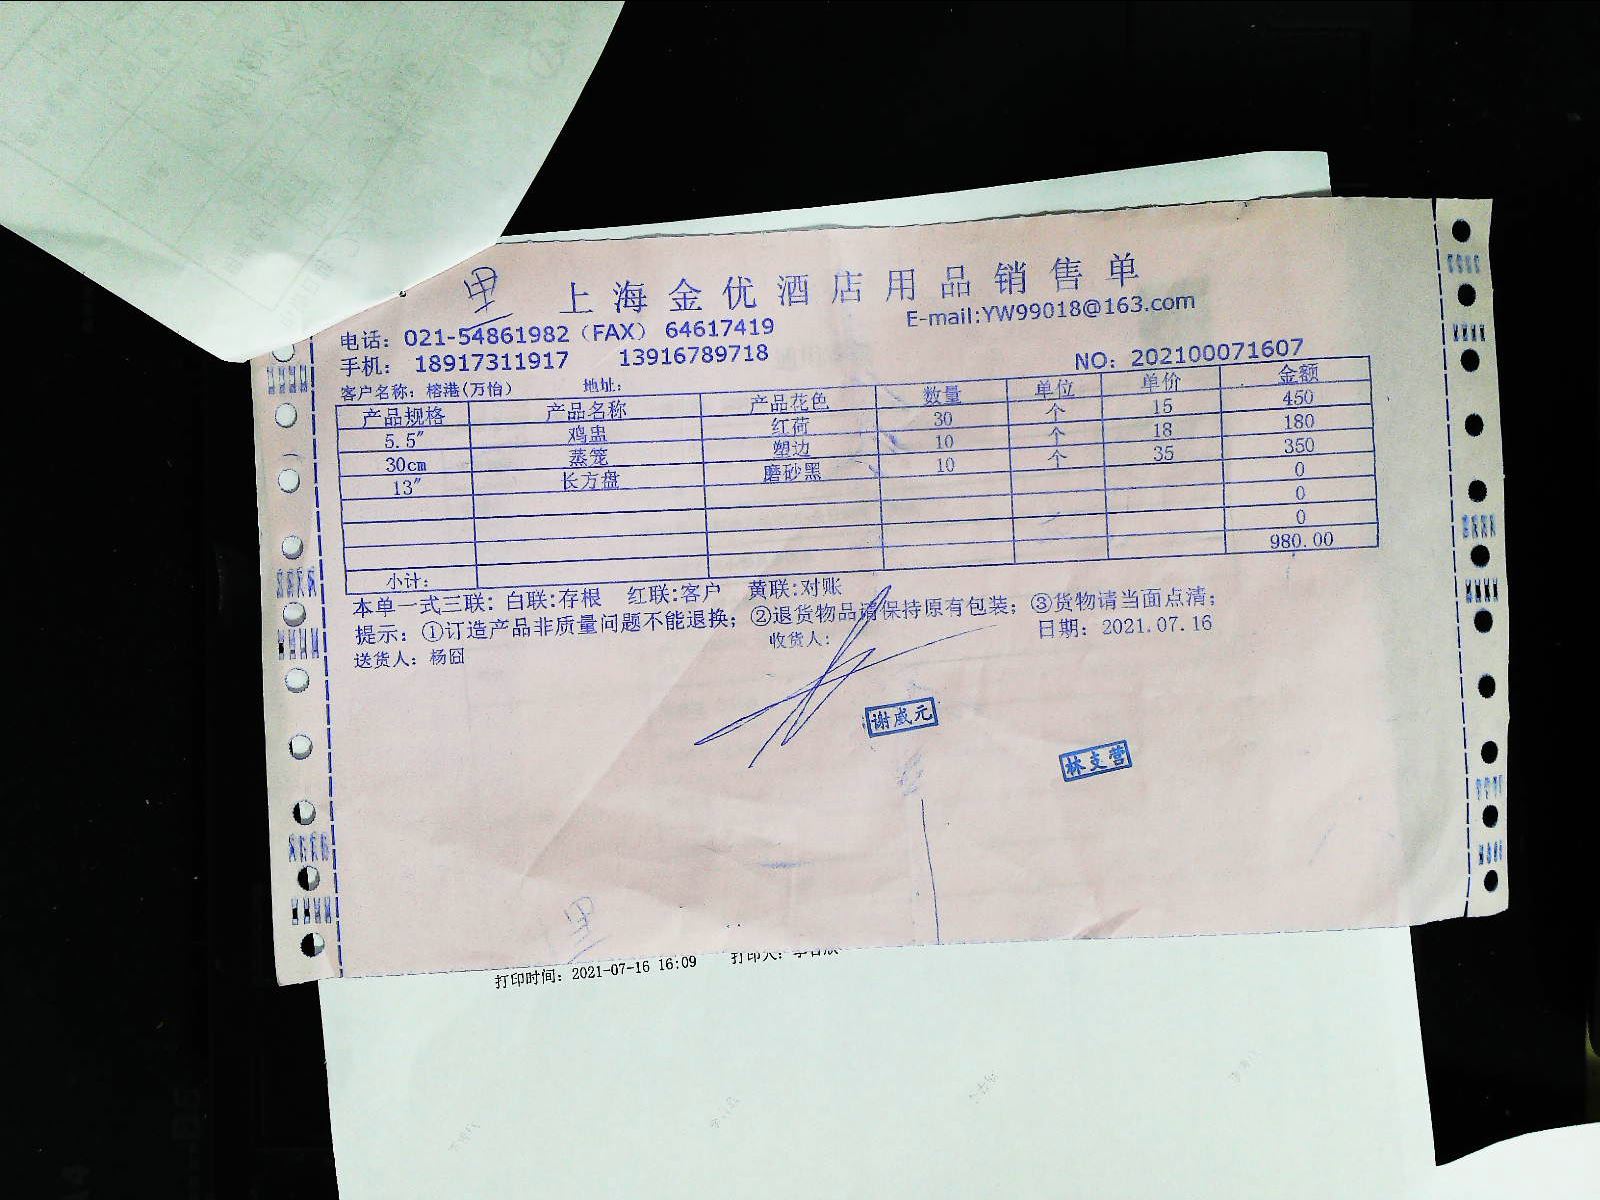 上海金优酒店用品销售单
电话：021-54861982（FAX） 64617419 E-mail:YW99018@163.com
手机： 18917311917 13916789718 NO：202100071607
客户名称：榕港(万怡) 地址：
产品规格 产品名称 产品花色 数量 单位 单价 金额
5.5" 鸡盅 红荷 30 个 15 450
30cm 蒸笼 塑边 10 个 18 180
13" 长方盘 磨砂黑 10 个 35 350
0
0
0
小计： 980.00
本单一式三联：白联:存根 红联:客户 黄联:对账
提示：①订造产品非质量问题不能退换；②退货物品请保持原有包装；③货物请当面点清；
送货人：杨囧 收货人： 日期：2021.07.16
谢威元
林支营
打印时间：2021-07-16 16:09 打印人：